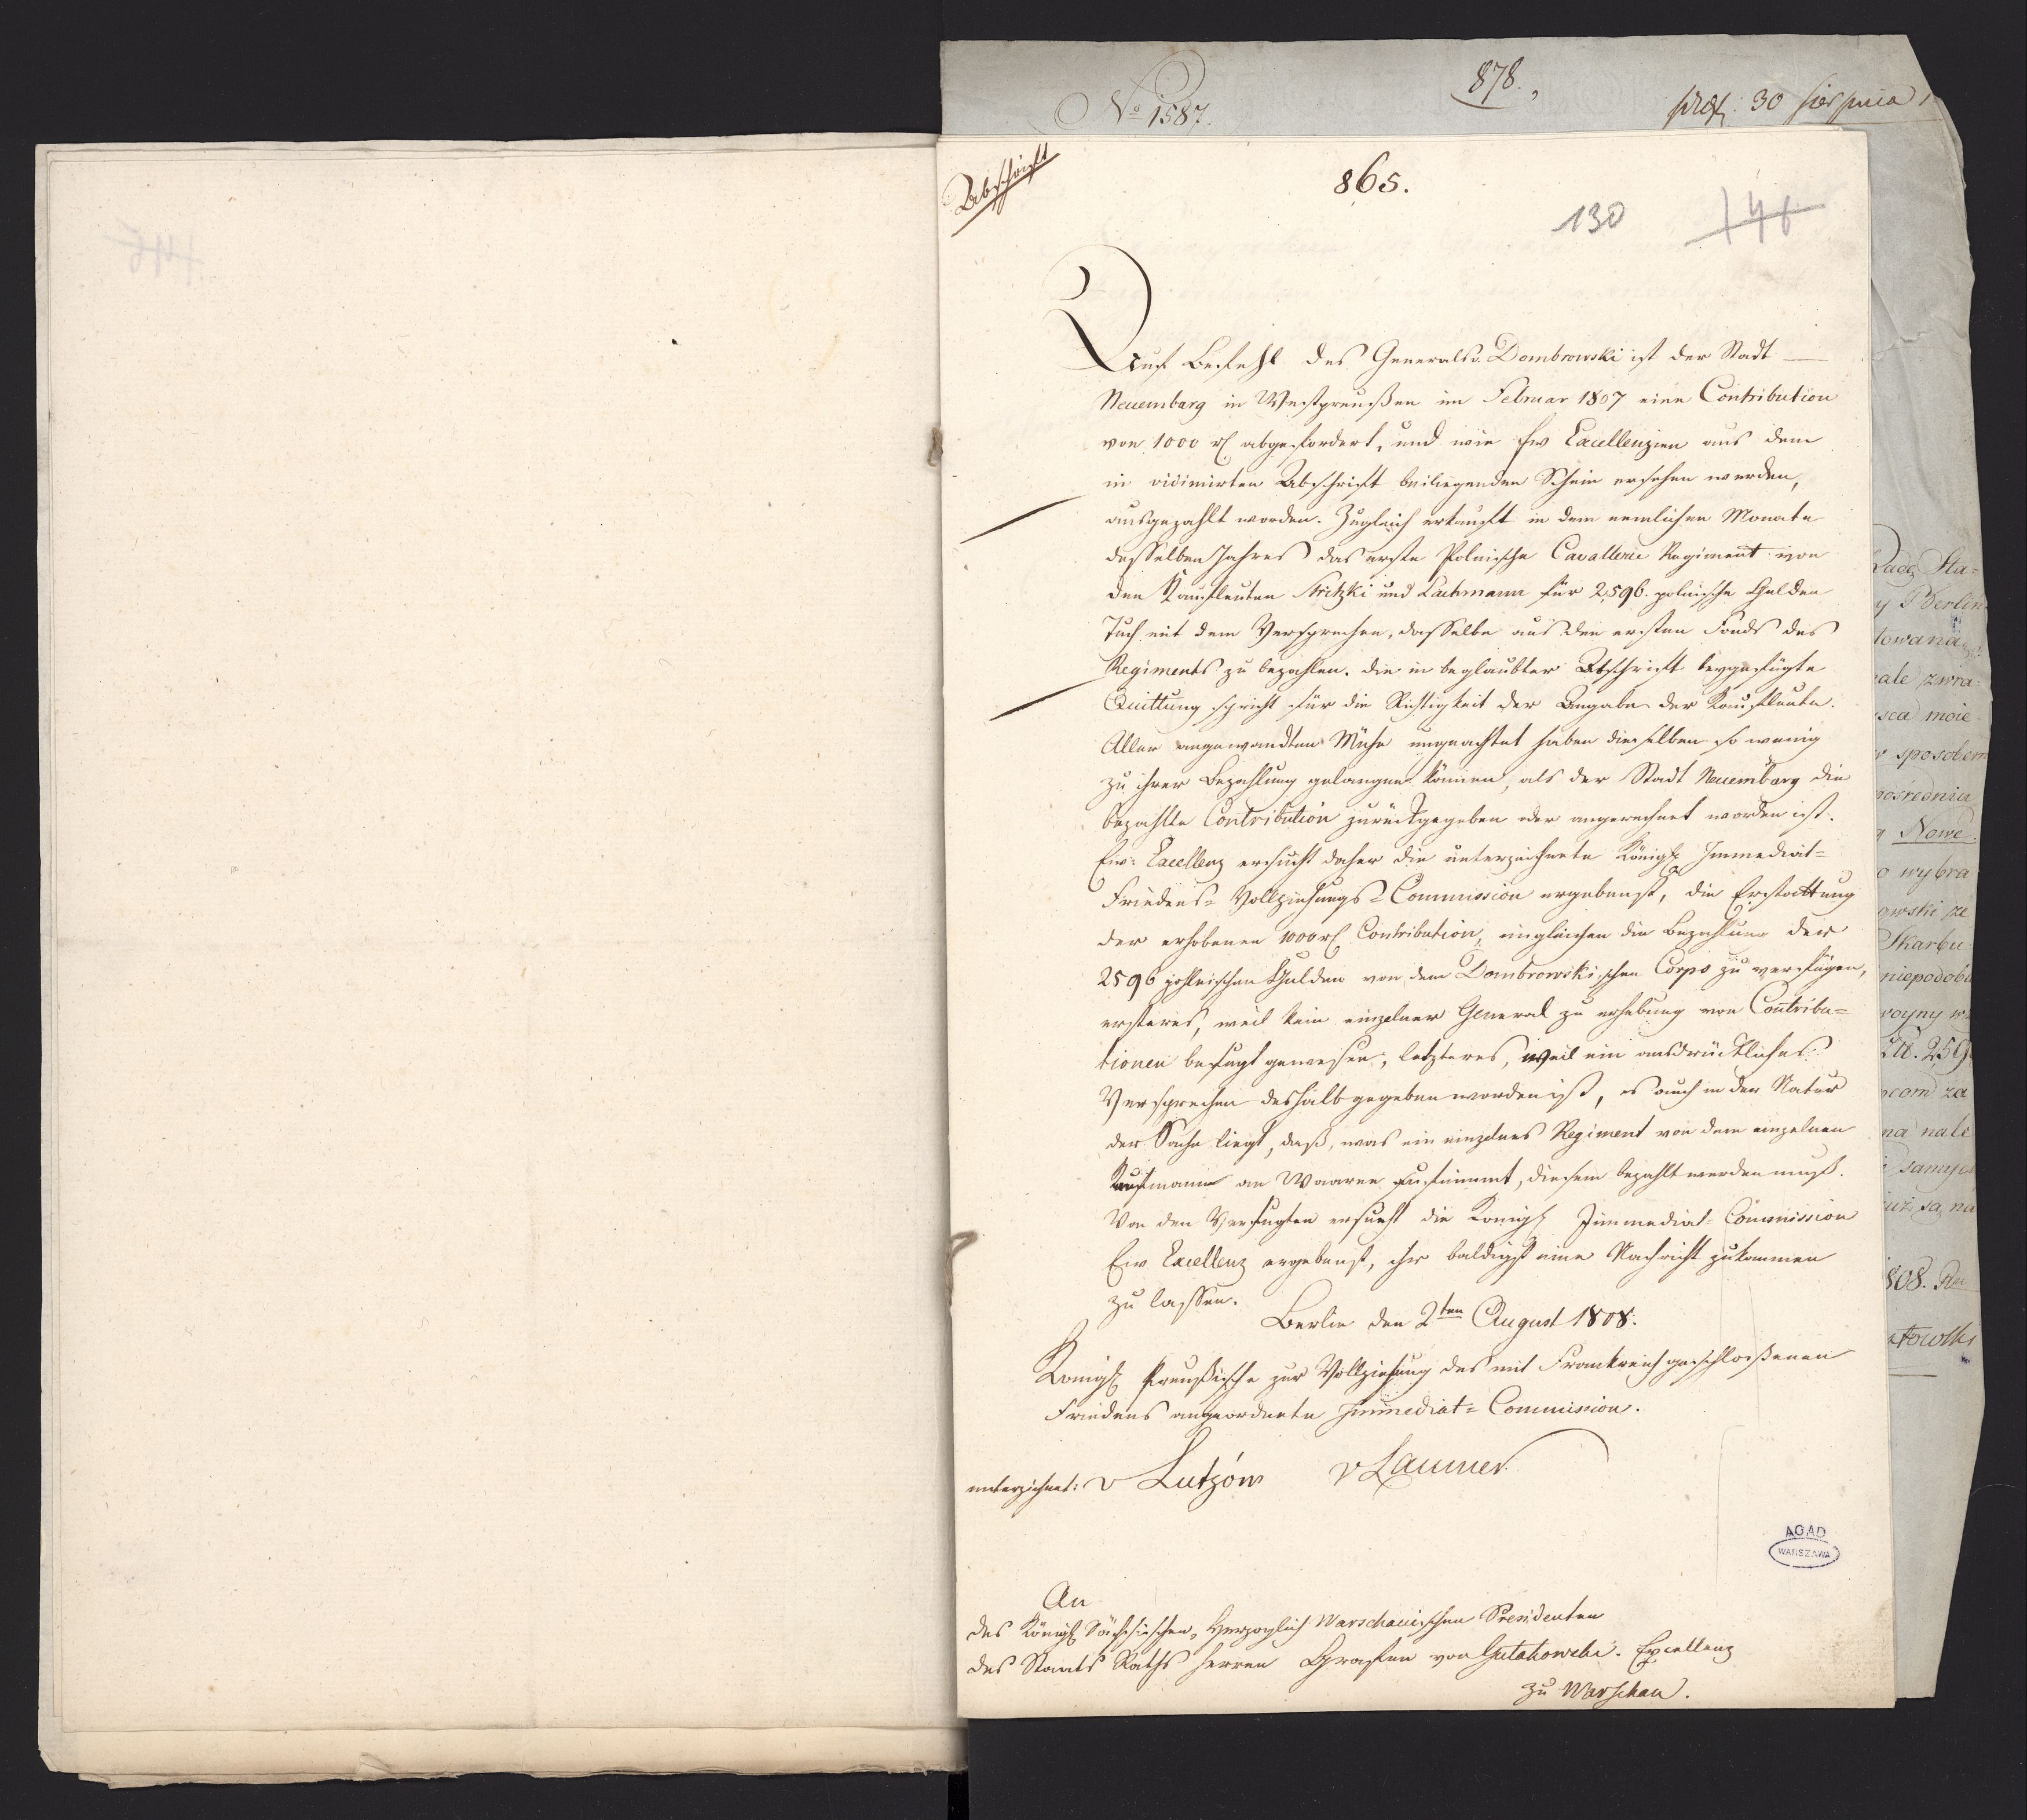 878.
No 1587.
30 sierpnia
Abschrift
865.
130
146
Auf Befehl des Generals v. Dombrowski ist der Stadt
Neuemburg in Westpreußen im Februar 1807 eine Contribution
von 1000 rℓ abgefordert, und wie Ew Excellenzien aus dem
in vidimirten Abschrift beiliegenden Schein ersehen werden,
ausgezahlt worden. Zugleich erkaufte in dem nemlichen Monate
desselben Jahres das erste Polnische Cavallerie Regiment von
den Kaufleuten Stritzki und Lachmann für 2,596. polnische Gulden
Tuch mit dem Versprechen, dasselbe aus den ersten Fonds des
Regiments zu bezahlen. Die in beglaubter Abschrift beygefügte
Quittung spricht für die Richtigkeit der Angabe der Kaufleute.
Aller angewandten Mühe ungeachtet haben dieselben so wenig
zu ihrer Bezahlung gelangen können, als der Stadt Neuemburg die
bezahlte Contribution zurückgegeben oder angerechnet worden ist.
Ew: Excellenz ersucht daher die unterzeichnete Königl Immediat-
Friedens-Vollziehungs-Commission ergebenst, die Erstattung
der erhobenen 1000 rℓ Contribution, imgleichen die Bezahlung der
2596 pohlnischen Gulden von dem Dombrowskischen Corps zu verfügen,
ersteres, weil kein einzelner General zu erhebung von Contribu-
tionen befugt gewesen, letzteres, weil ein ausdrückliches
Versprechen deshalb gegeben worden ist, es auch in der Natur
der Sache liegt, daß, was ein einzelnes Regiment von dem einzelnen
Kaufmann an Waaren entnimmt, diesem bezahlt werden muß.
Von den Verfügten ersucht die Königl Immediat-Commission
Ew Excellenz ergebenst, ihr baldigst eine Nachricht zukommen
zu lassen.
Berlin den 2ten August 1808.
Königl Preußische zur Vollziehung des mit Frankreich geschloßenen
Friedens angeordnete Immediat-Commission.
unterzeichnet: v Lutzów v Laumer.
AGAD
WARSZAWA
An
des Königl Sächsischen, Herzoglich Warschauischen Presidenten
des Staats Raths Herren Grafen von Gutakowski. Excellenz
zu Warschau.
Berlin
towana
moie
sposobem
Nowe
wybra
owski ze
Skarbu
niepodob
woyny
Złł. 259
na nale
już są na
808.